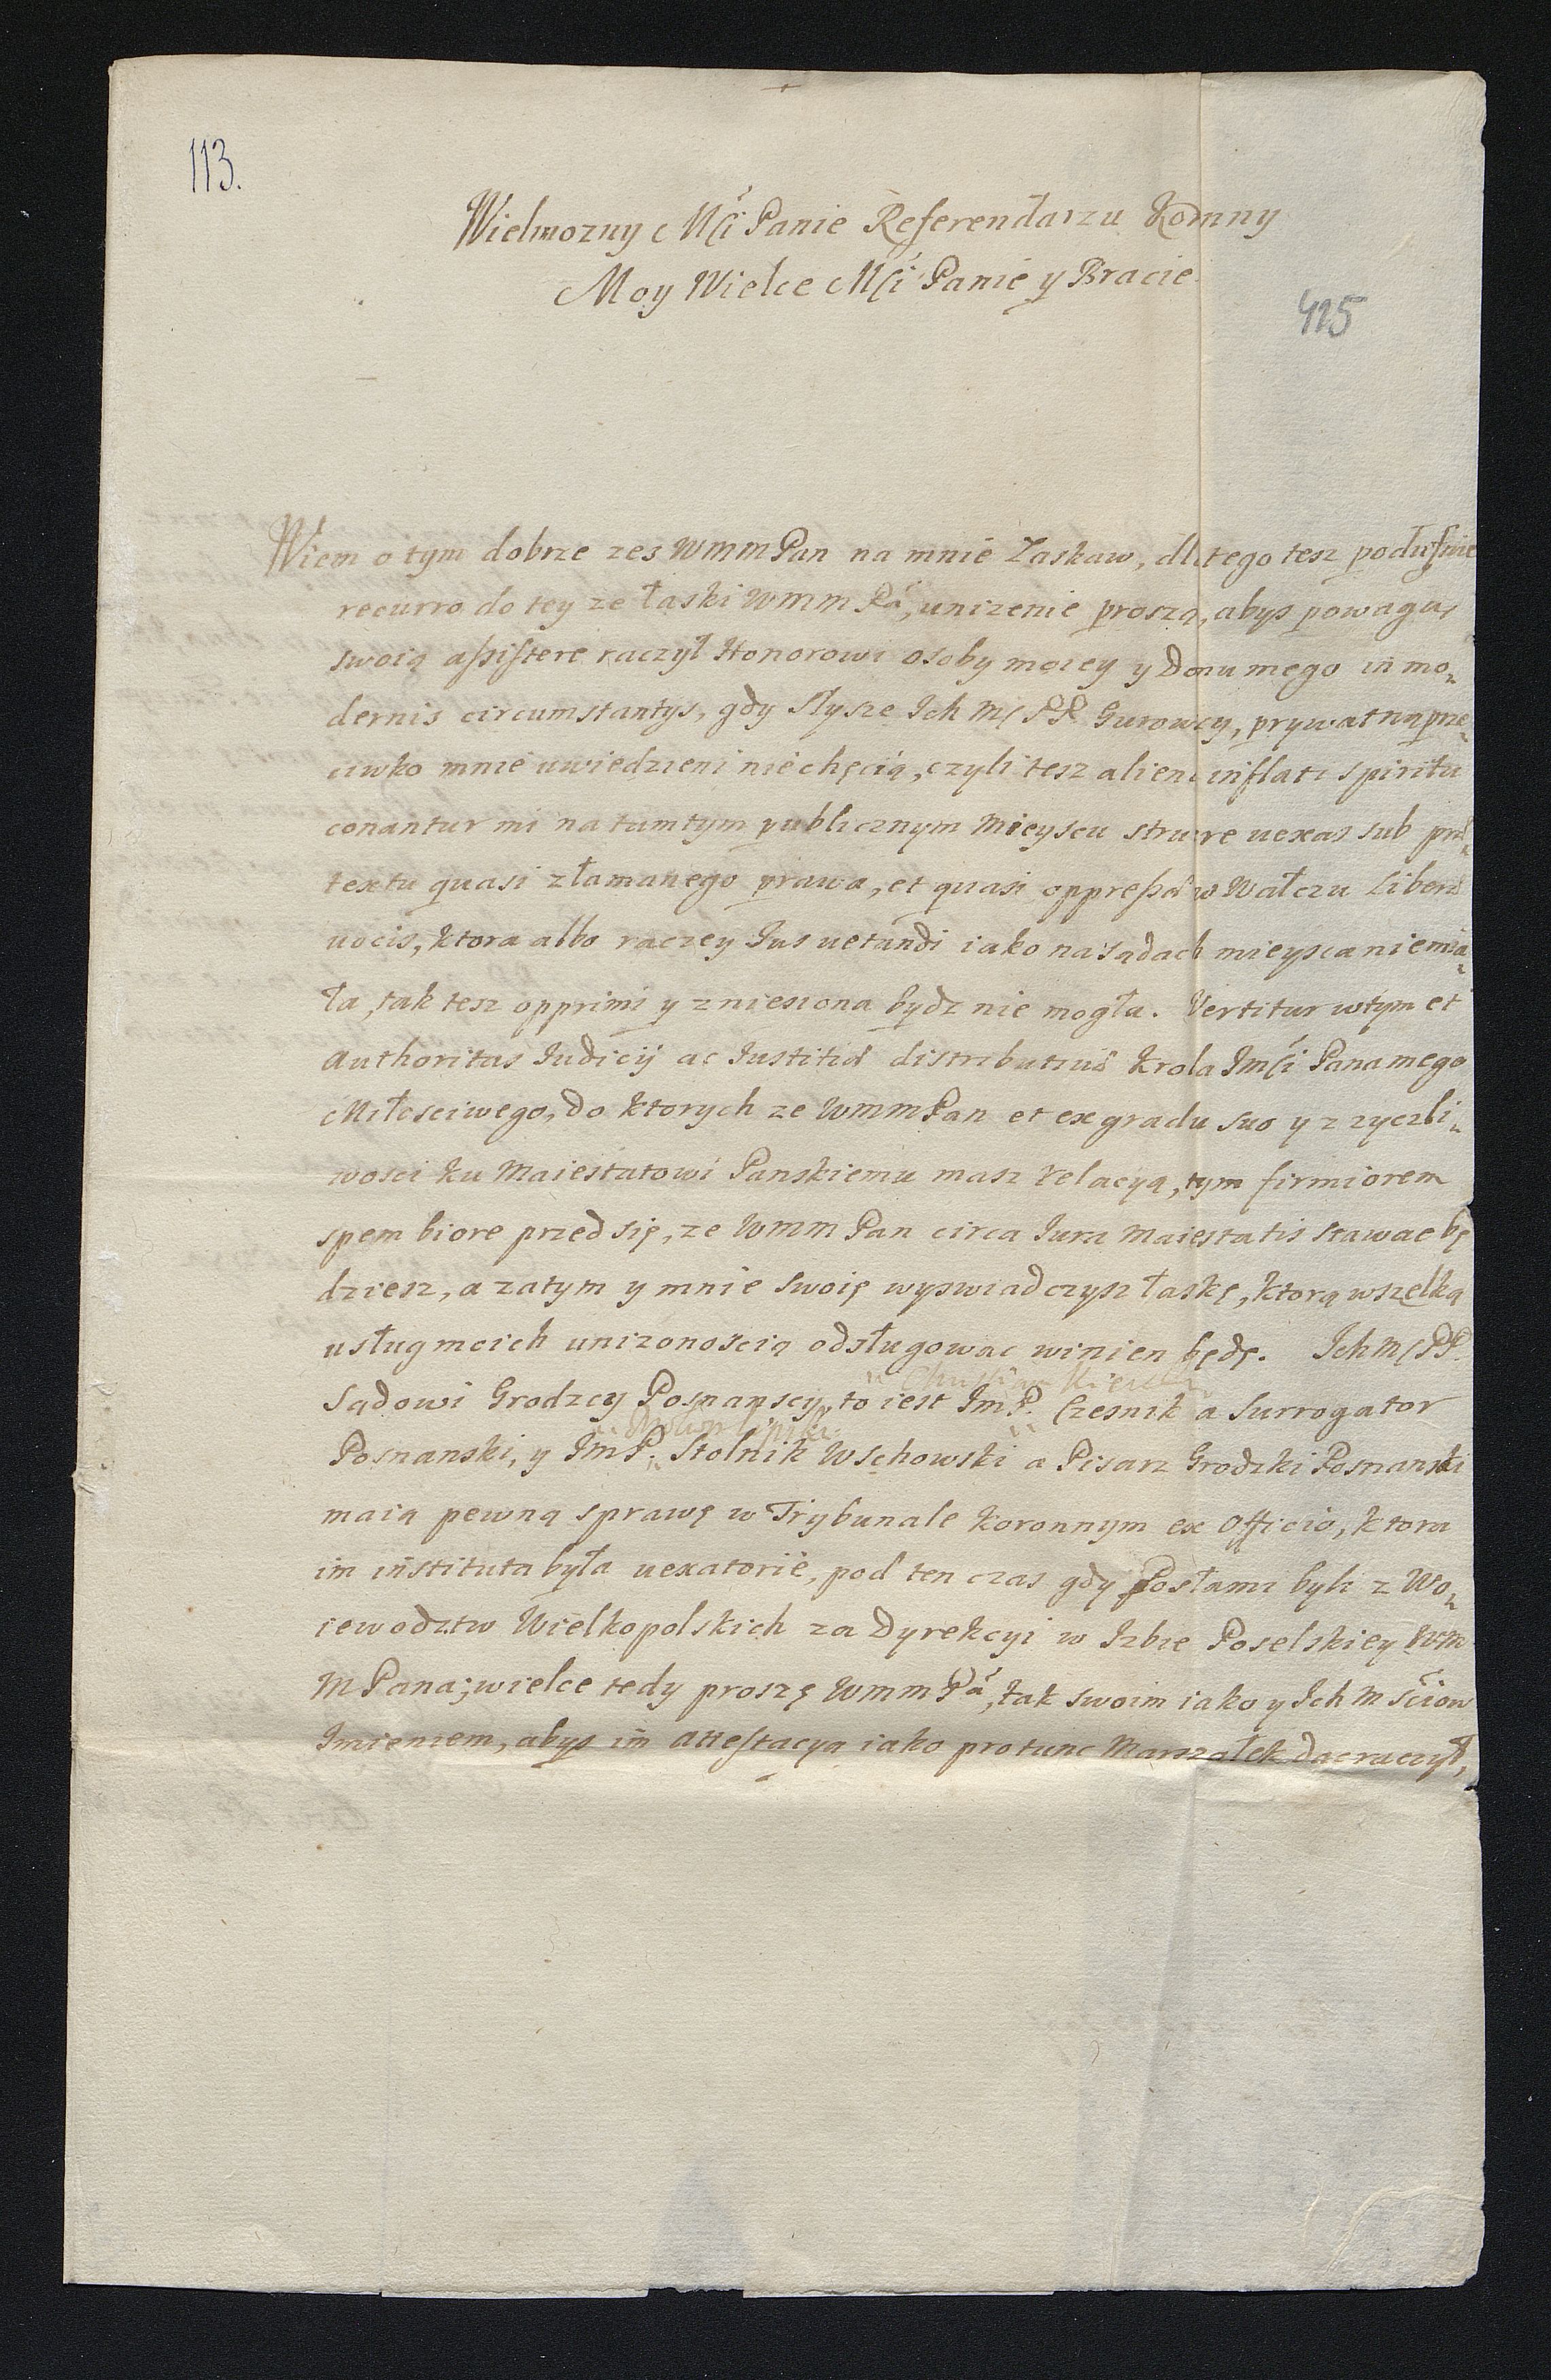 113.
Wielmozny Mći Panie Referendarzu Komny
Moy Wielce Mći Panie y Bracie
425
Wiem o tym dobrze zes WMMPan na mnie Łaskaw, dla tego tesz podufnie
recurro do tey ze łaski WMM Pá, unizenie proszą, abys powagą
swoią assistere raczył Honorowi osoby moiey y Domu mego in mo„
dernis circumstantys, gdy słysze Ich M PP. Gurowcy, prywatną prze„
ciwko mnie uwiedzieni niechęcią, czyli tesz alieno inflati spiritu
conantur mi na tamtym publicznym Mieyscu struere uexas sub præ„
textu quasi złamanego prawa, et quasi oppressæ w Wałczu Liberæ
uocis, ktora albo raczey Jus uetandi iako na sądach mieysca niemia„
ła, tak tesz opprimi y zniesiona bydz nie mogła. Vertitur w tym et
Authoritas Judicij ac Justitiæ distributiuæ Krola Jmći Pana mego
Miłosciwego, do ktorych ze WMMPan et ex gradu suo y z zyczli„
wosci ku Maiestatowi Panskiemu masz relacyą, tym firmiorem
spem biore przed się, ze WMM Pan circa Jura Maiestatis stawac bę
dziesz, a zatym y mnie swoię wyswiadczysz łaskę, ktorą wszelką
usług moich unizonoscią odsługowac winien będę. Ich M PP.
Sądowi Grodzcy Posnanscy, to iest JmP. Czesnik a Surrogator
Posnanski, y JmP. Stolnik Wschowski a Pisarz Grodzki Posnanski
maią pewną sprawę w Trybunale Koronnym ex Officio, ktora
im instituta była uexatorie, pod ten czas gdy Posłami byli z Wo„
iewodztw Wielkopolskich za Dyrekcyi w Izbie Poselskiey WM
MPana; wielce tedy proszę WMM Pá, tak swoim iako y Ich Mściow
Imieniem, abys im attestacyą iako pro tunc Marszałek dac raczył,